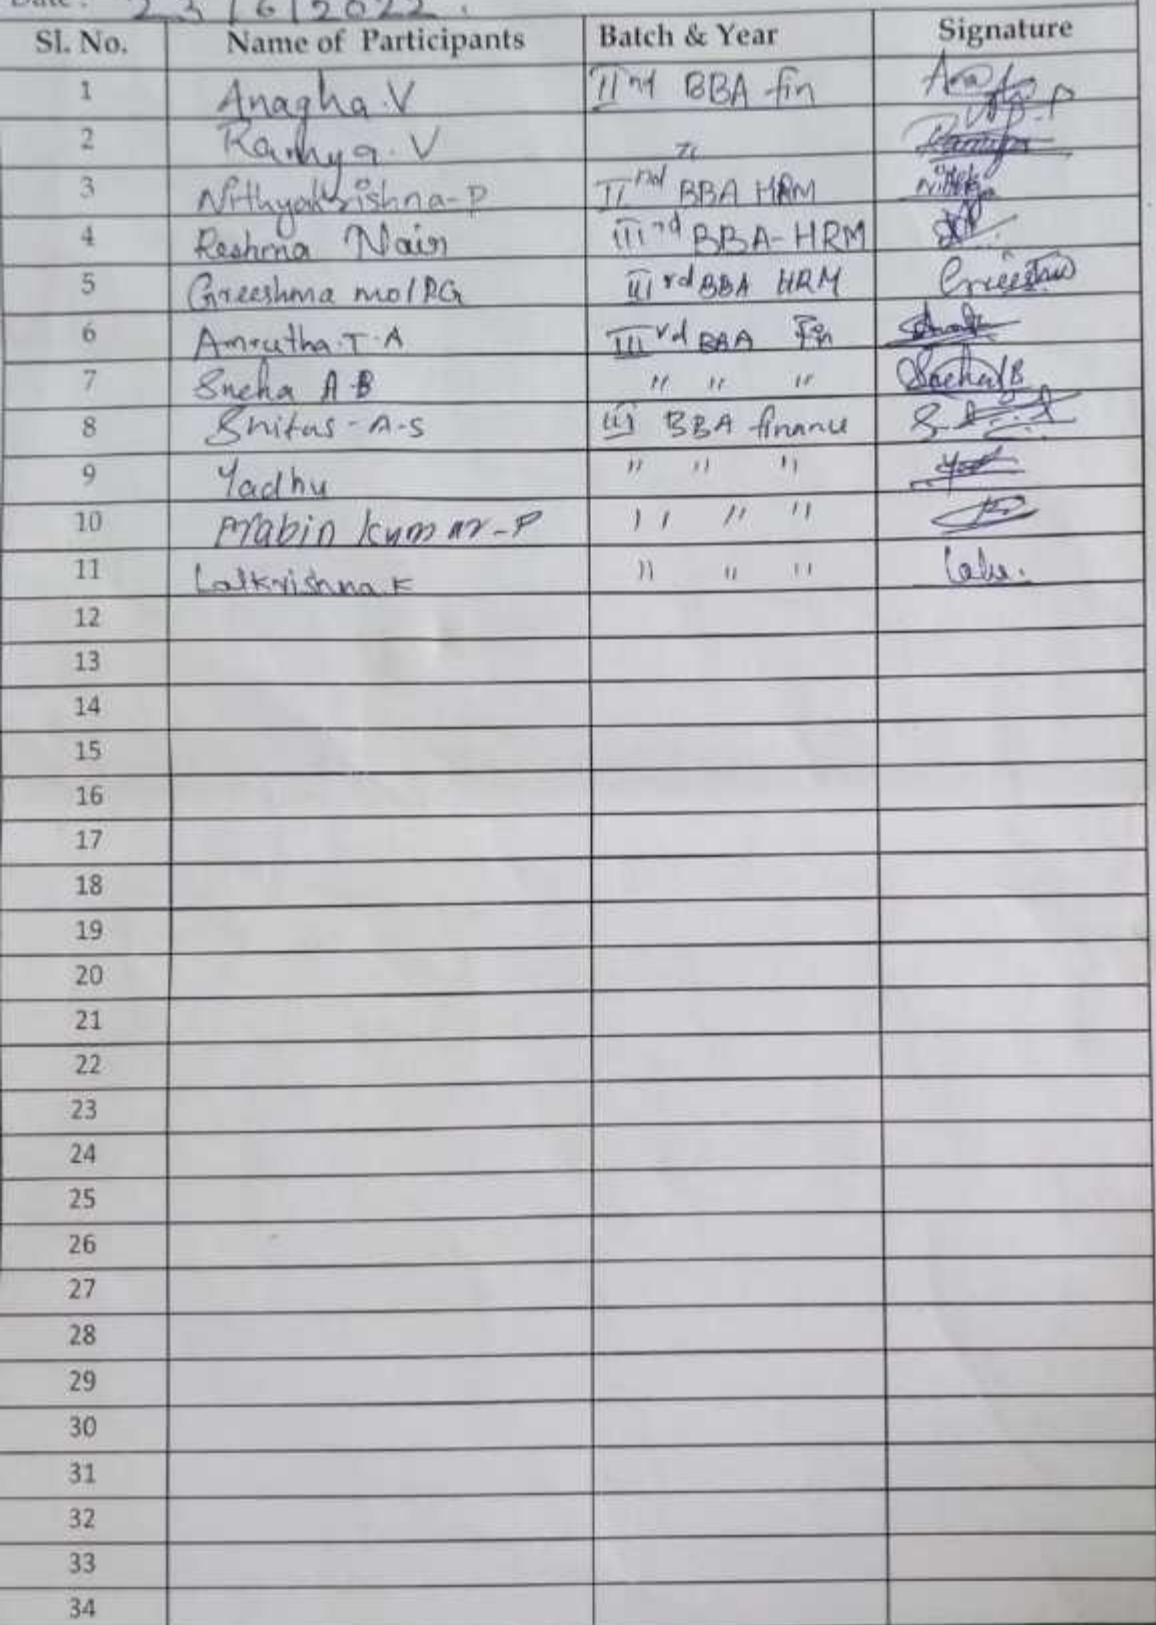 Date : 23/6/2022.
Sl. No. Name of Participants Batch & Year Signature
1 Anagha.V IInd BBA fin
2 Ramya.V "
3 Nithyakrishna-P IInd BBA HRM
4 Reshma Nair IIIrd BBA-HRM
5 Greeshma mol P.G IIIrd BBA HRM
6 Amrutha.T.A IIIrd BBA Fin
7 Sneha A B " " " Sneha A B
8 A-S III BBA finance
9 Yadhu " " "
10 Prabin Kumar-P " " "
11 Lalkrishna.K " " "
12
13
14
15
16
17
18
19
20
21
22
23
24
25
26
27
28
29
30
31
32
33
34